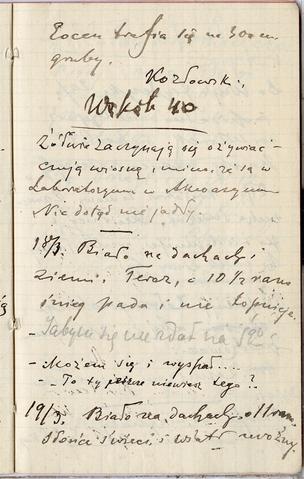 Eocen trafia się na 300 m.
gruby.
Kozłowski.
Wąkok 40
Żółwie zaczynają się ożywiać –
czują wiosnę, mimo że są w
Laboratoryum w Akwaryum
Nic dotąd nie jadły.
18/3. Biało na dachach i
ziemi. Teraz, o 10 1/2 rano
śnieg pada i nie topnieje.
- Jabym się nie zdał na
- Możem się i wyspał....
- - To ty jeszcze niewiesz tego?
19/3. Biało na dachach, o 11 rano
słońce świeci i wiatr mroźny.